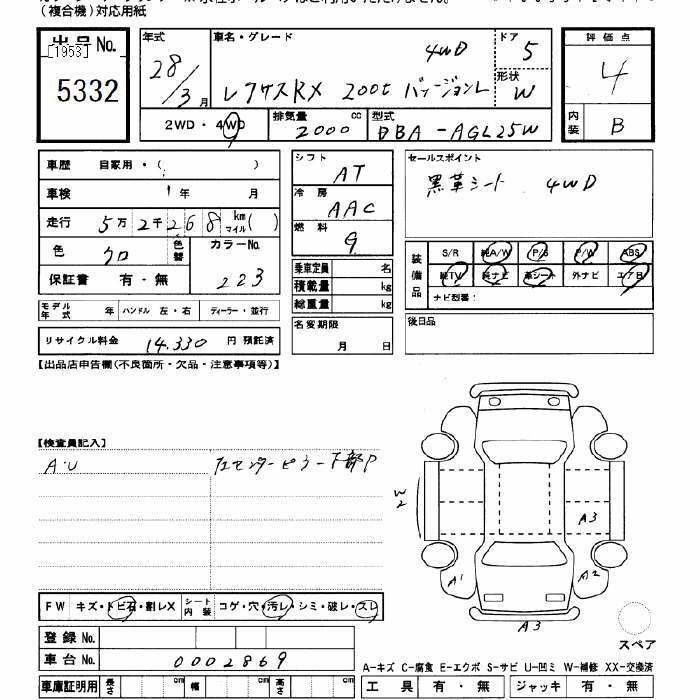 (複合機)対応用紙
出品No.
[1953]
5332
年式
28/3月
車名・グレード
4WD
レクサスRX 200t バージョンL
ドア
5
形状
W
評価点
4
内装
B
2WD・4WD
排気量
2000 cc
型式
DBA-AGL25W
車歴 自家用・( )
車検 年 月
走行 5万2千268 km マイル( )
色 クロ
色替
カラーNo.
223
保証書 有・無
モデル年式 年 ハンドル 左・右 ディーラー・並行
リサイクル料金 14.330 円 預託済
シフト
AT
冷房
AAC
燃料
G
乗車定員 名
積載量 kg
総重量 kg
名変期限
月 日
セールスポイント
黒革シート 4WD
装備品
S/R 純A/W P/S P/W ABS
純TV 純ナビ 革シート 外ナビ エアB
ナビ型番:
後日品
【出品店申告欄(不良箇所・欠品・注意事項等)】
【検査員記入】
A・U 左センターピラー下部P
W2
A3
A1
A2
A3
スペア
FW キズ・トビ石・割レX シート内装 コゲ・穴・汚レ・シミ・破レ・スレ
登録No.
車台No. 0002869
車庫証明用 長さ cm 幅 cm 高さ cm
A-キズ C-腐食 E-エクボ S-サビ U-凹ミ W-補修 XX-交換済
工具 有・無 ジャッキ 有・無